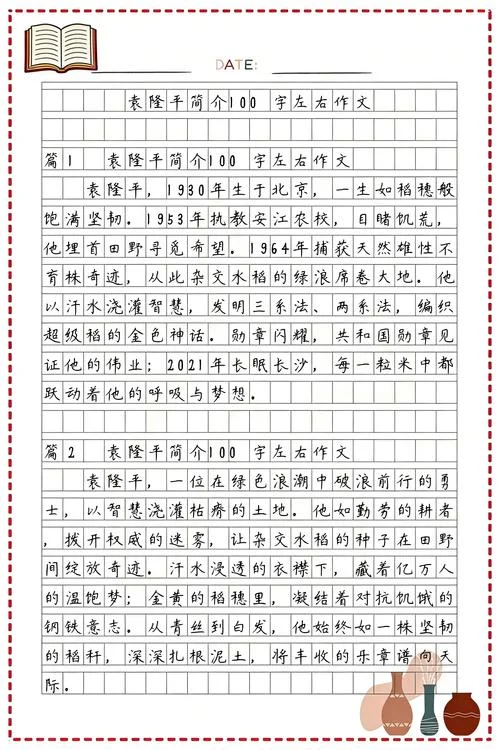 DATE:
袁隆平简介100 字左右作文
篇1 袁隆平简介100 字左右作文
袁隆平，1930年生于北京，一生如稻穗般
饱满坚韧。1953年执教安江农校，目睹饥荒，
他埋首田野寻觅希望。1964年捕获天然雄性不
育株奇迹，从此杂交水稻的绿浪席卷大地。他
以汗水浇灌智慧，发明三系法、两系法，编织
超级稻的金色神话。勋章闪耀，共和国勋章见
证他的伟业；2021年长眠长沙，每一粒米中都
跃动着他的呼吸与梦想。
篇2 袁隆平简介100 字左右作文
袁隆平，一位在绿色浪潮中破浪前行的勇
士，以智慧浇灌枯瘠的土地。他如勤劳的耕者
，拨开权威的迷雾，让杂交水稻的种子在田野
间绽放奇迹。汗水浸透的衣襟下，藏着亿万人
的温饱梦；金黄的稻穗里，凝结着对抗饥饿的
钢铁意志。从青丝到白发，他始终如一株坚韧
的稻秆，深深扎根泥土，将丰收的乐章谱向天
际。